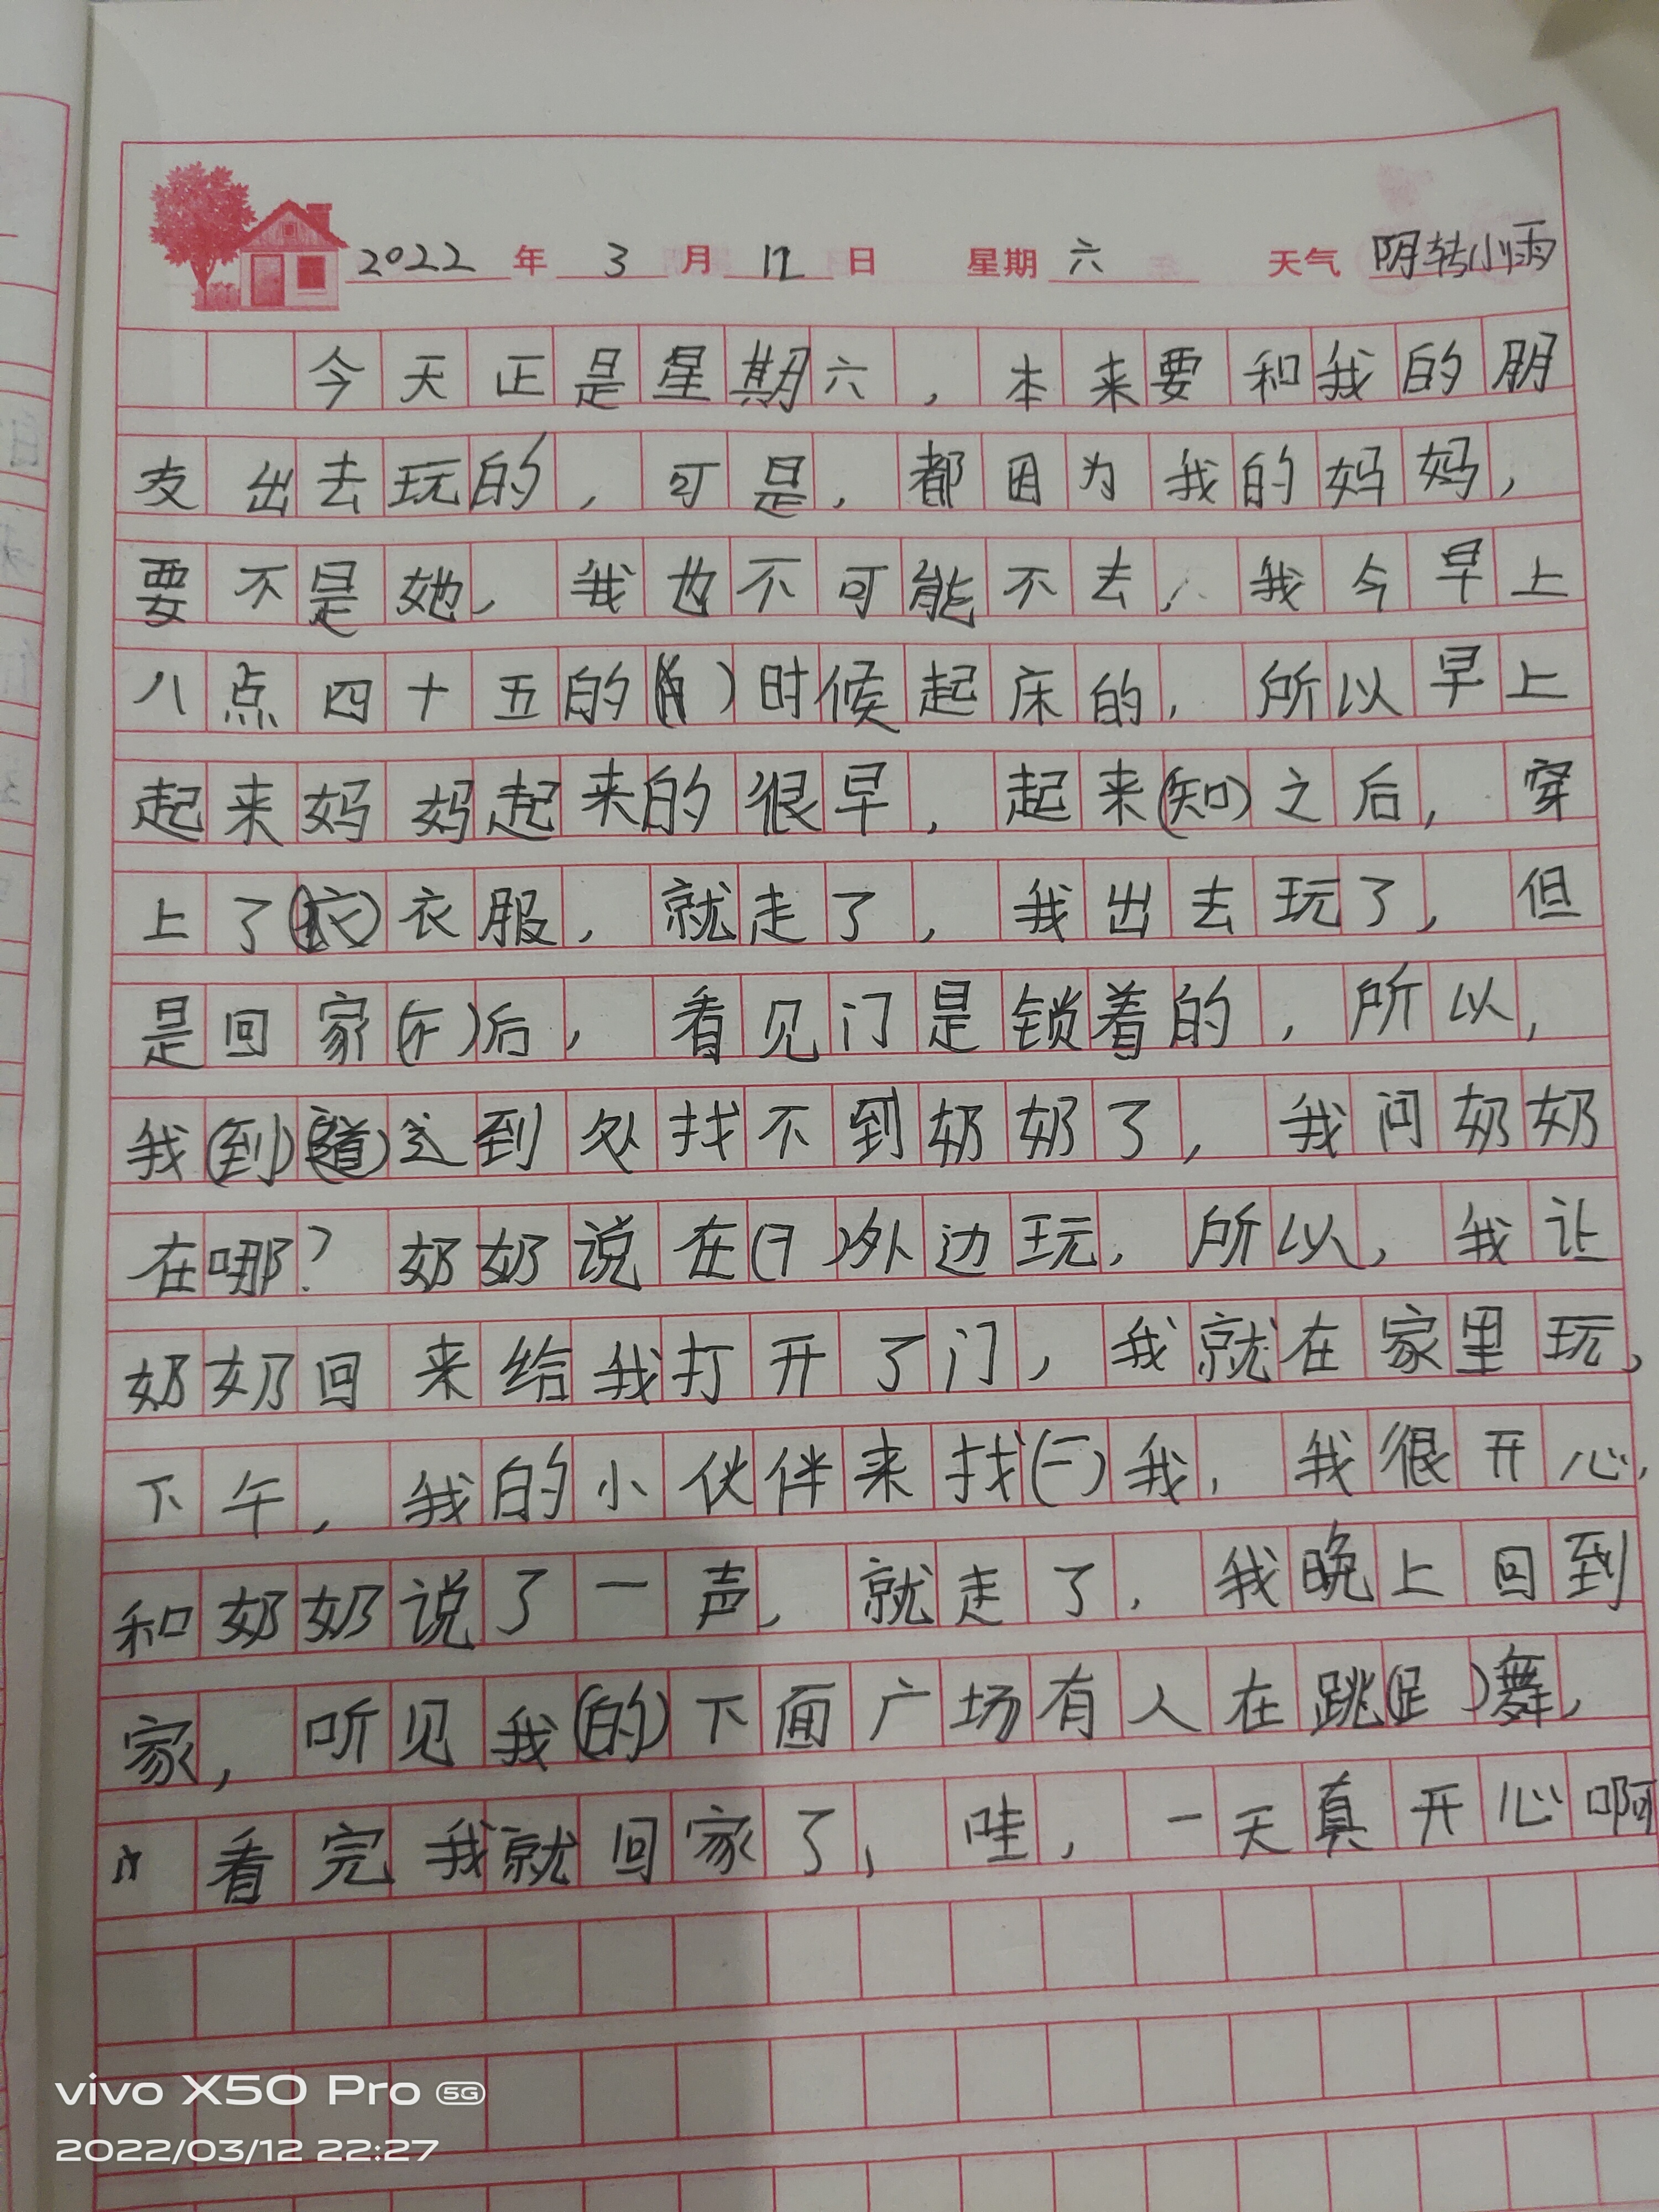 2022 年 3 月 12 日 星期 六 天气 阴转小雨
今天正是星期六,本来要和我的朋
友出去玩的,可是,都因为我的妈妈,
要不是她,我也不可能不去,我今早上
八点四十五的( )时候起床的,所以早上
起来妈妈起来的很早,起来(知)之后,穿
上了( )衣服,就走了,我出去玩了,但
是回家( )后,看见门是锁着的,所以,
我(到)(道)到处找不到奶奶了,我问奶奶
在哪?奶奶说在( )外边玩,所以,我让
奶奶回来给我打开了门,我就在家里玩,
下午,我的小伙伴来找( )我,我很开心,
和奶奶说了一声,就走了,我晚上回到
家,听见我(的)下面广场有人在跳( )舞,
看完我就回家了,哇,一天真开心啊
vivo X50 Pro 5G
2022/03/12 22:27